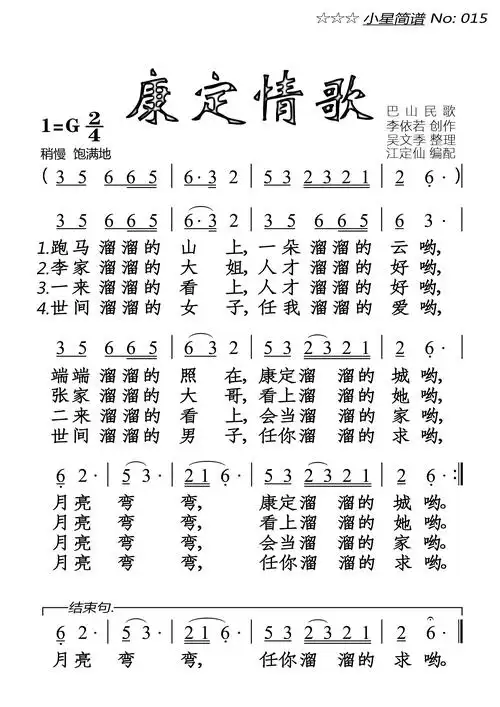 ☆☆☆ 小星简谱 No: 015
康定情歌
1=G 2/4
巴山民歌
李依若 创作
吴文季 整理
江定仙 编配
稍慢 饱满地
( 3 5 6 6 5 | 6·3 2 | 5 3 2 3 2 1 | 2 6· )
3 5 6 6 5 | 6·3 2 | 3 5 6 6 5 | 6 3· |
1.跑马 溜溜的 山 上,一朵 溜溜的 云哟,
2.李家 溜溜的 大 姐,人才 溜溜的 好哟,
3.一来 溜溜的 看 上,人才 溜溜的 好哟,
4.世间 溜溜的 女 子,任我 溜溜的 爱哟,
3 5 6 6 5 | 6 3 2 | 5 3 2 3 2 1 | 2 6· |
端端 溜溜的 照 在,康定溜 溜的 城哟,
张家 溜溜的 大 哥,看上溜 溜的 她哟,
二来 溜溜的 看 上,会当溜 溜的 家哟,
世间 溜溜的 男 子,任你溜 溜的 求哟,
6 2· | 5 3· | 2 1 6· | 5 3 2 3 2 1 | 2 6· :‖
月亮 弯 弯, 康定溜 溜的 城哟。
月亮 弯 弯, 看上溜 溜的 她哟。
月亮 弯 弯, 会当溜 溜的 家哟。
月亮 弯 弯, 任你溜 溜的 求哟。
结束句.
6 2· | 5 3· | 2 1 6· | 5 3 2 3 2 1 | 2 6· ‖
月亮 弯 弯, 任你溜 溜的 求哟。